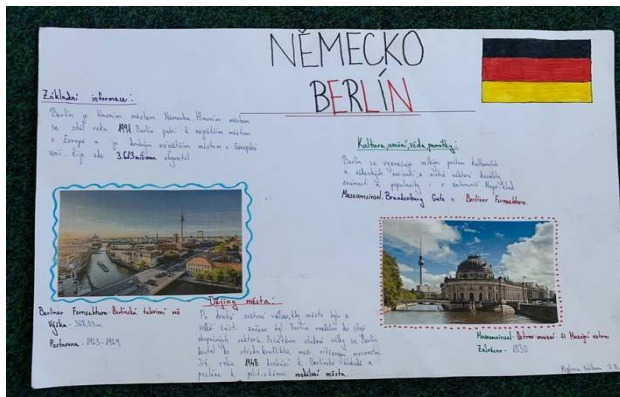 NĚMECKO
BERLÍN
Základní informace:
Berlín je hlavním městem Německa. Hlavním městem
se stal roku 1991. Berlín patří k největším městům
v Evropě a je druhým největším městem v Evropské
unii. Žije zde obyvatel.
Kultura, umění, věda, památky:
Berlín se vyznačuje velkým počtem kulturních
a vědeckých a některé
známosti a popularity i v zahraničí. Například
Museumsinsel, Brandenburg Gate a Berliner Fernsehturm.
Berliner Fernsehturm - Berlínská televizní věž
Výška - 368,03m
Postavena - 1965-1969
Dějiny města:
Po druhé světové válce, kdy město bylo z
velké části zničeno byl Berlín rozdělen do čtyř
okupačních sektorů. Počátkem studené války se Berlín
dostal do středu konfliktu mezi
roku 1948 dochází k Berlínské blokádě a
posléze k politickému rozdělení města.
Museumsinsel - ostrov muzeí či Muzejní ostrov
Založeno - 1830